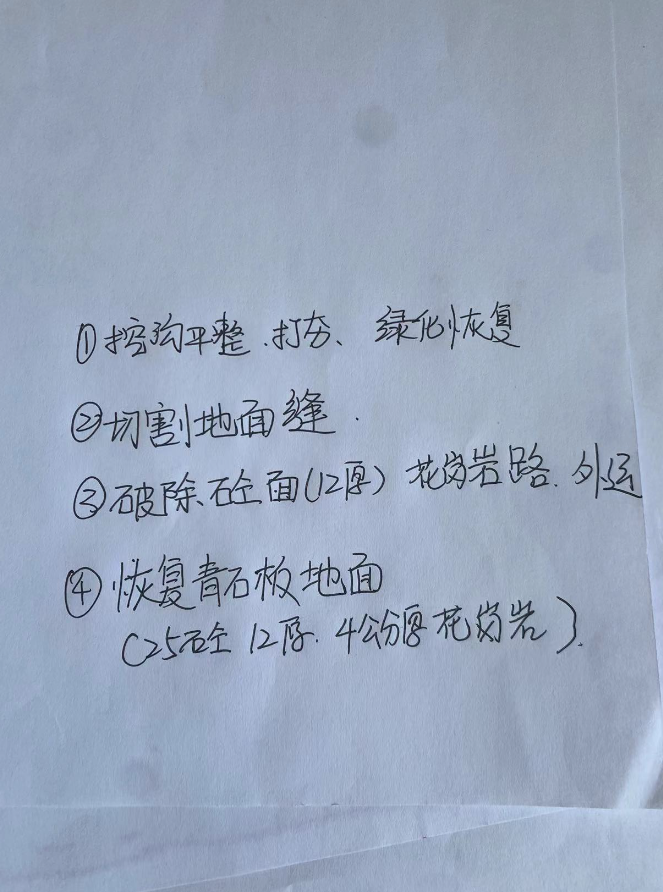 ①挖沟平整、打夯、绿化恢复
②切割地面缝.
③破除砼面(12厚)花岗岩路、外运
④恢复青石板地面
(25砼12厚.4公分厚花岗岩).